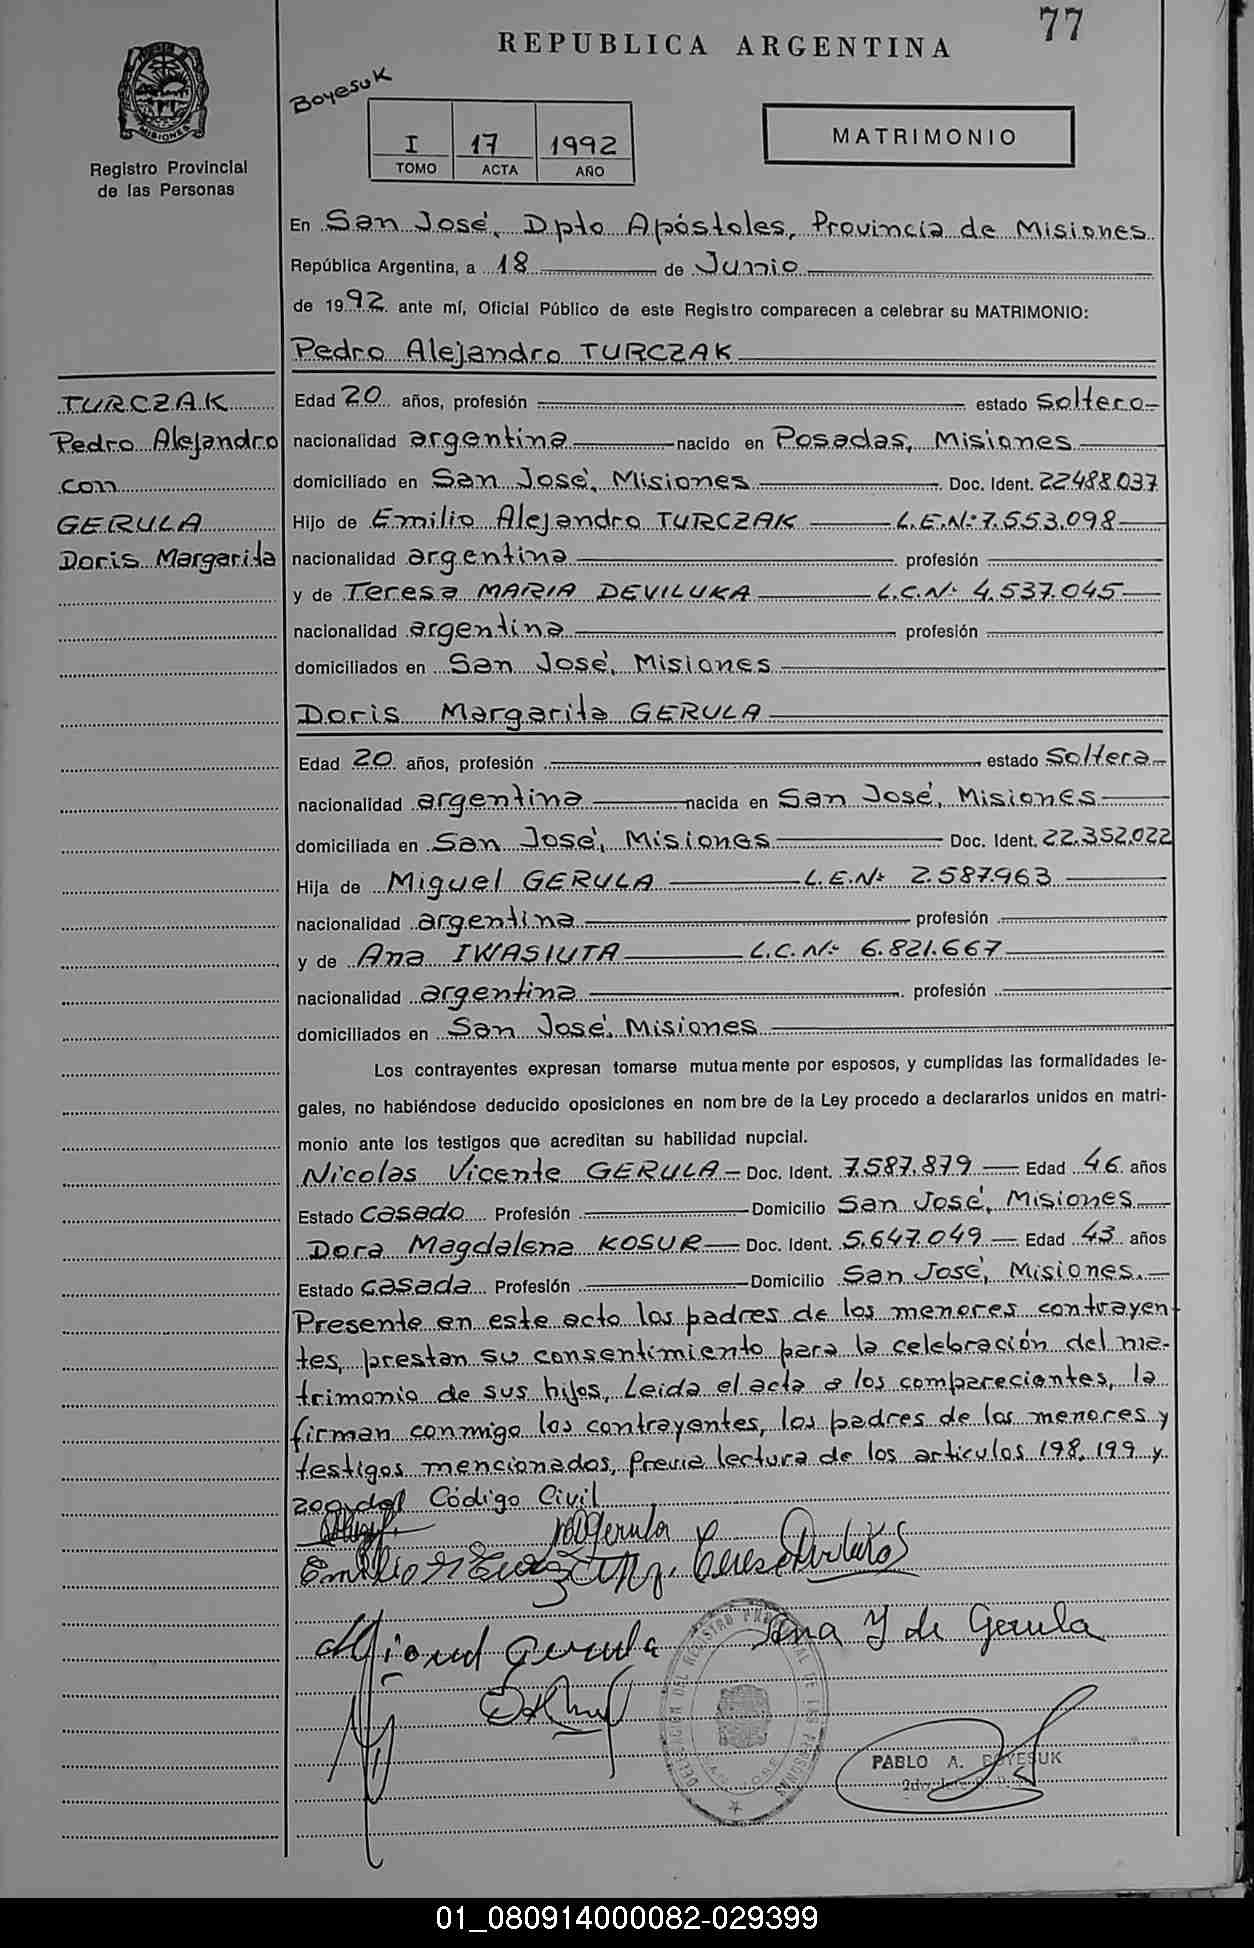 77
REPUBLICA ARGENTINA
Boyesuk
MISIONES
Registro Provincial
de las Personas
I 17 1992
TOMO ACTA AÑO
MATRIMONIO
En San José, Dpto Apóstoles, Provincia de Misiones
República Argentina, a 18 de Junio
de 1992 ante mí, Oficial Público de este Registro comparecen a celebrar su MATRIMONIO:
Pedro Alejandro TURCZAK
TURCZAK
Pedro Alejandro
con
GERULA
Doris Margarita
Edad 20 años, profesión estado Soltero
nacionalidad argentina nacido en Posadas, Misiones
domiciliado en San José, Misiones Doc. Ident. 22488.037
Hijo de Emilio Alejandro TURCZAK L.E.Nº 7.553.098
nacionalidad argentina profesión
y de Teresa MARIA DEVILUKA L.C.Nº 4.537.045
nacionalidad argentina profesión
domiciliados en San José, Misiones
Doris Margarita GERULA
Edad 20 años, profesión estado Soltera
nacionalidad argentina nacida en San José, Misiones
domiciliada en San José, Misiones Doc. Ident. 22.352.022
Hija de Miguel GERULA L.E.Nº 2.587.963
nacionalidad argentina profesión
y de Ana IWASIUTA L.C.Nº 6.821.667
nacionalidad argentina profesión
domiciliados en San José, Misiones
Los contrayentes expresan tomarse mutuamente por esposos, y cumplidas las formalidades le-
gales, no habiéndose deducido oposiciones en nombre de la Ley procedo a declararlos unidos en matri-
monio ante los testigos que acreditan su habilidad nupcial.
Nicolas Vicente GERULA Doc. Ident. 7.587.879 Edad 46 años
Estado Casado Profesión Domicilio San José, Misiones
Dora Magdalena KOSUR Doc. Ident. 5.647.049 Edad 43 años
Estado Casada Profesión Domicilio San José, Misiones.
Presente en este acto los padres de los menores contrayen
tes, prestan su consentimiento para la celebración del ma-
trimonio de sus hijos, Leida el acta a los comparecientes, la
firman conmigo los contrayentes, los padres de los menores y
testigos mencionados, previa lectura de los articulos 198, 199 y
200 del Código Civil
Gerula
Emilio
Miguel Gerula Ana Y de Gerula
DELEGACION DEL REGISTRO PROVINCIAL DE LAS PERSONAS
SAN JOSE
PABLO A. BOYESUK
01_080914000082-029399